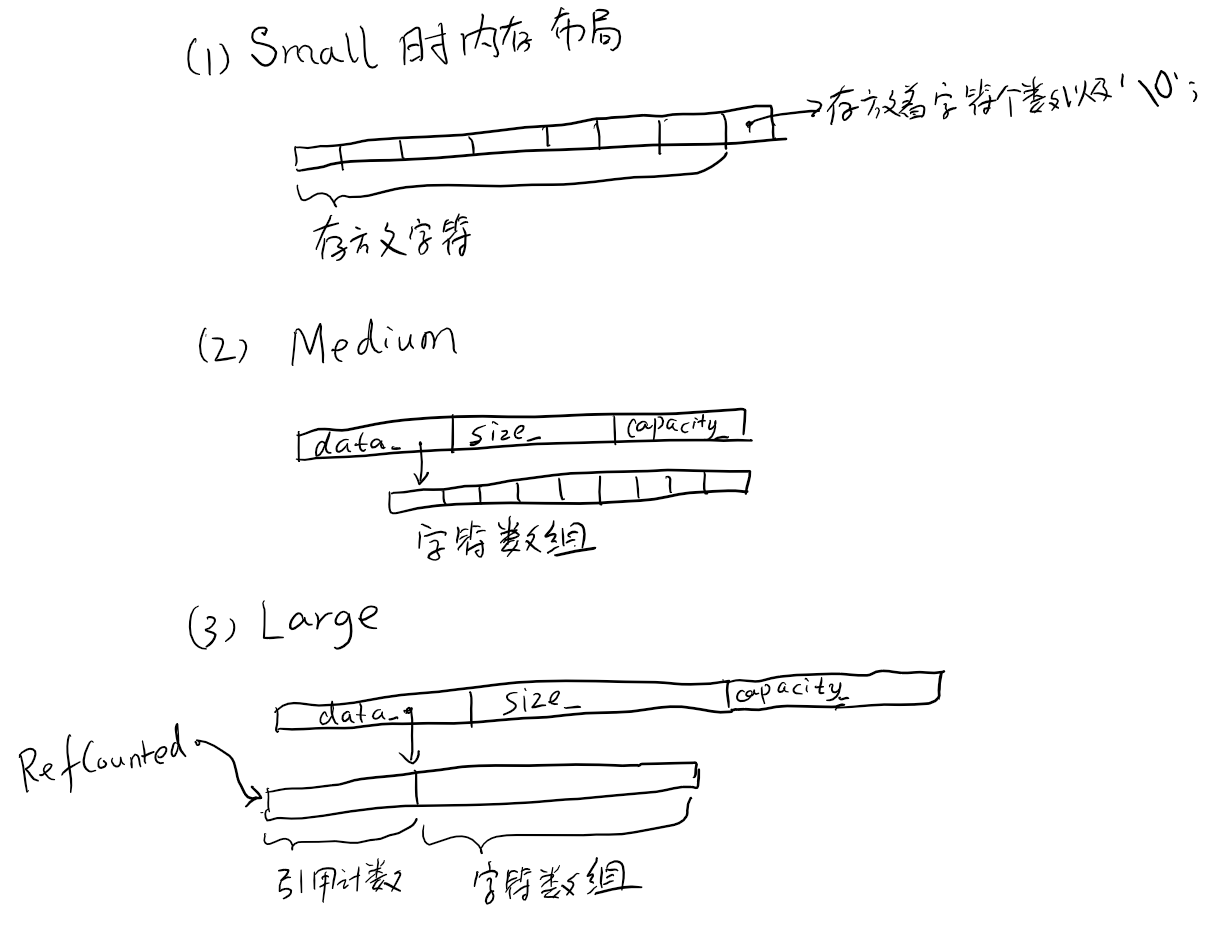 (1) Small 时内存布局
存放着字符个数以及'\0';
存放字符
(2) Medium
data_ size_ capacity_
字符数组
(3) Large
data_ size_ capacity_
RefCounted
引用计数 字符数组